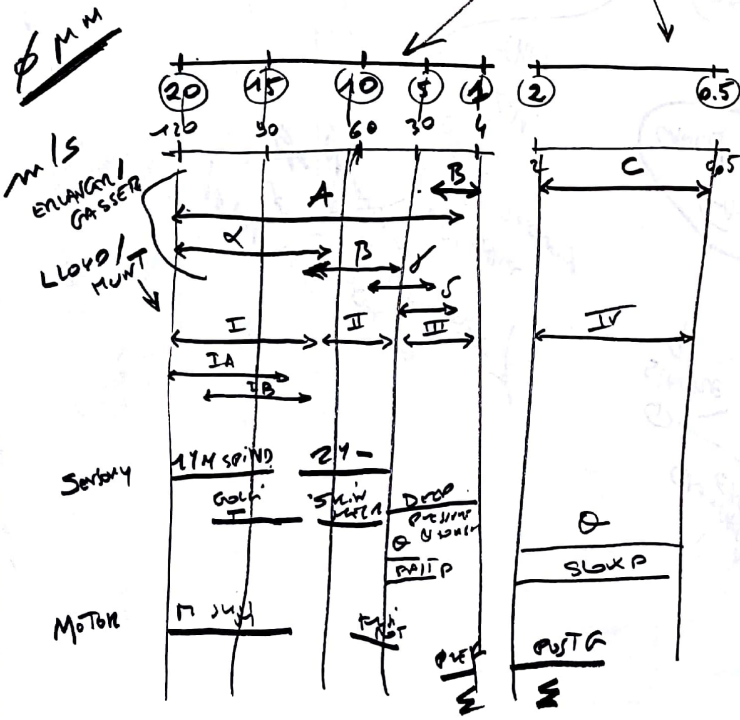 ϕ μM
20 15 10 5 1 2 0.5
120 90 60 30 4 2 0.5
m/s
ERLANGER/
GASSER
A B C
α β γ
δ
LLOYD/
HUNT
I II III IV
IA
IB
Sensory
1Y M SPIND 2Y
GOLGI
T
SKIN
DEEP
PRESSURE
θ θ
FAST P SLOW P
MOTOR
PRE POSTG
Σ Σ